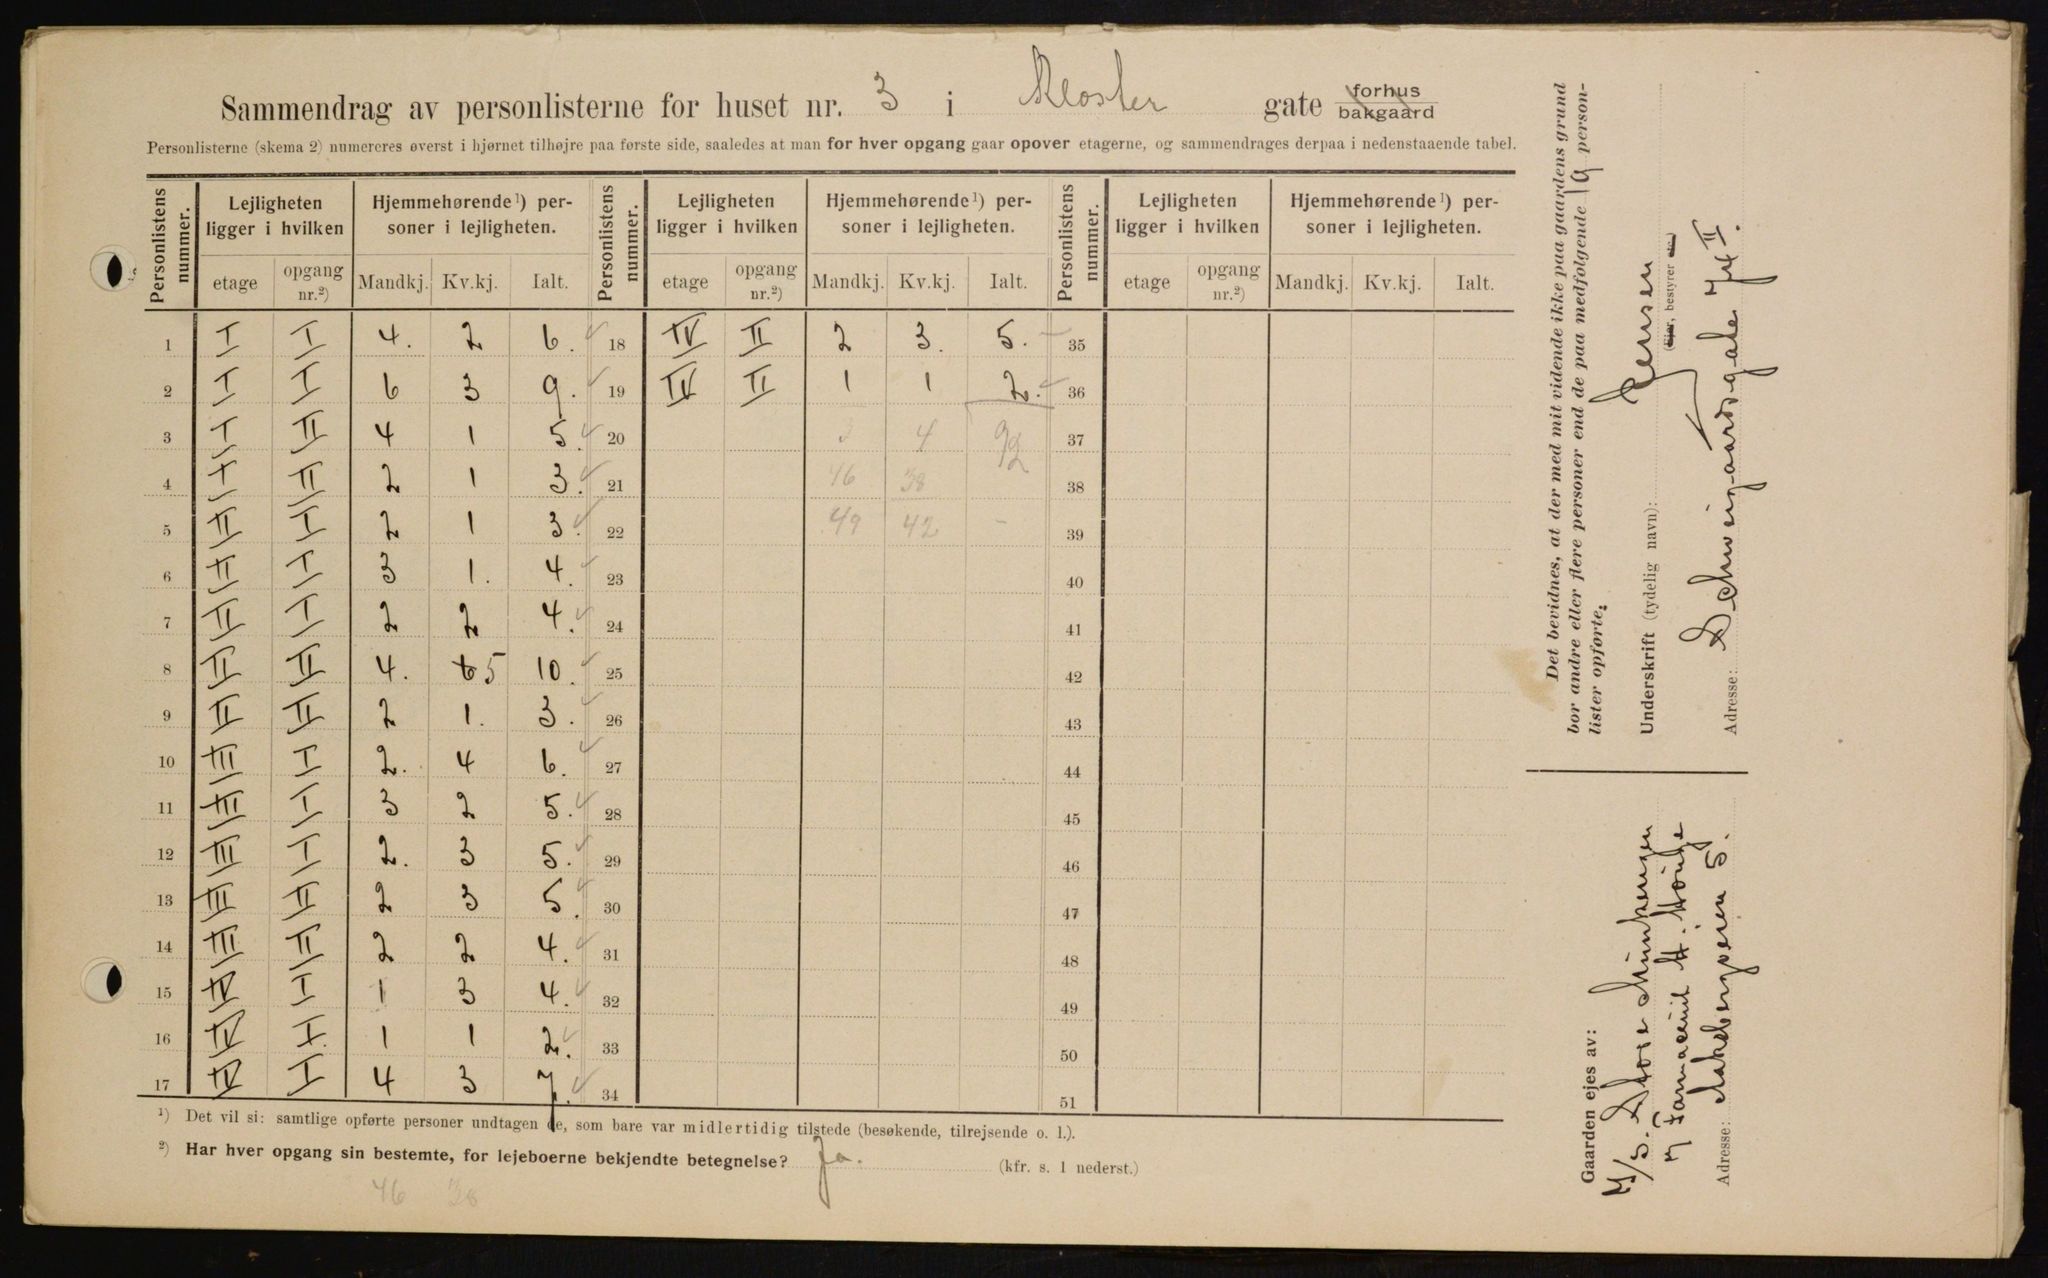 Sammendrag av personlisterne for huset nr. 3 i Kloster gate forhus bakgaard
Personlisterne (skema 2) numereres øverst i hjørnet tilhøjre paa første side, saaledes at man for hver opgang gaar opover etagerne, og sammendrages derpaa i nedenstaaende tabel.
Personlistens nummer. Lejligheten ligger i hvilken Hjemmehørende ¹) personer i lejligheten. Personlistens nummer. Lejligheten ligger i hvilken Hjemmehørende ¹) personer i lejligheten. Personlistens nummer. Lejligheten ligger i hvilken Hjemmehørende ¹) personer i lejligheten.
etage opgang nr.²) Mandkj. Kv.kj. Ialt. etage opgang nr.²) Mandkj. Kv.kj. Ialt. etage opgang nr.²) Mandkj. Kv.kj. Ialt.
1 I I 4. 2 6. 18 IV II 2 3. 5. 35
2 I I 6 3 9. 19 IV II 1 1 2. 36
3 I II 4 1 5. 20 3 4 92 37
4 I II 2 1 3. 21 46 38 38
5 II I 2 1 3. 22 49 42 - 39
6 II I 3 1. 4. 23 40
7 II I 2 2 4. 24 41
8 II II 4. 6 5 10. 25 42
9 II II 2 1. 3. 26 43
10 III I 2. 4 6. 27 44
11 III I 3 2 5. 28 45
12 III I 2. 3 5. 29 46
13 III II 2 3 5. 30 47
14 III II 2 2 4. 31 48
15 IV I 1 3 4. 32 49
16 IV I. 1 1 2. 33 50
17 IV I 4 3 7. 34 51
¹) Det vil si: samtlige opførte personer undtagen de, som bare var midlertidig tilstede (besøkende, tilrejsende o. l.).
²) Har hver opgang sin bestemte, for lejeboerne bekjendte betegnelse? Ja. (kfr. s. 1 nederst.)
46 38
Det bevidnes, at der med mit vidende ikke paa gaardens grund
bor andre eller flere personer end de paa medfølgende 19 person-
lister opførte.
Underskrift (tydelig navn): Jensen
(Ejer, bestyrer etc.)
Adresse: Schweigaardsgate 74 II.
Gaarden ejes av:
A/S. Store Munkengen
Adresse: Akersveien 5.